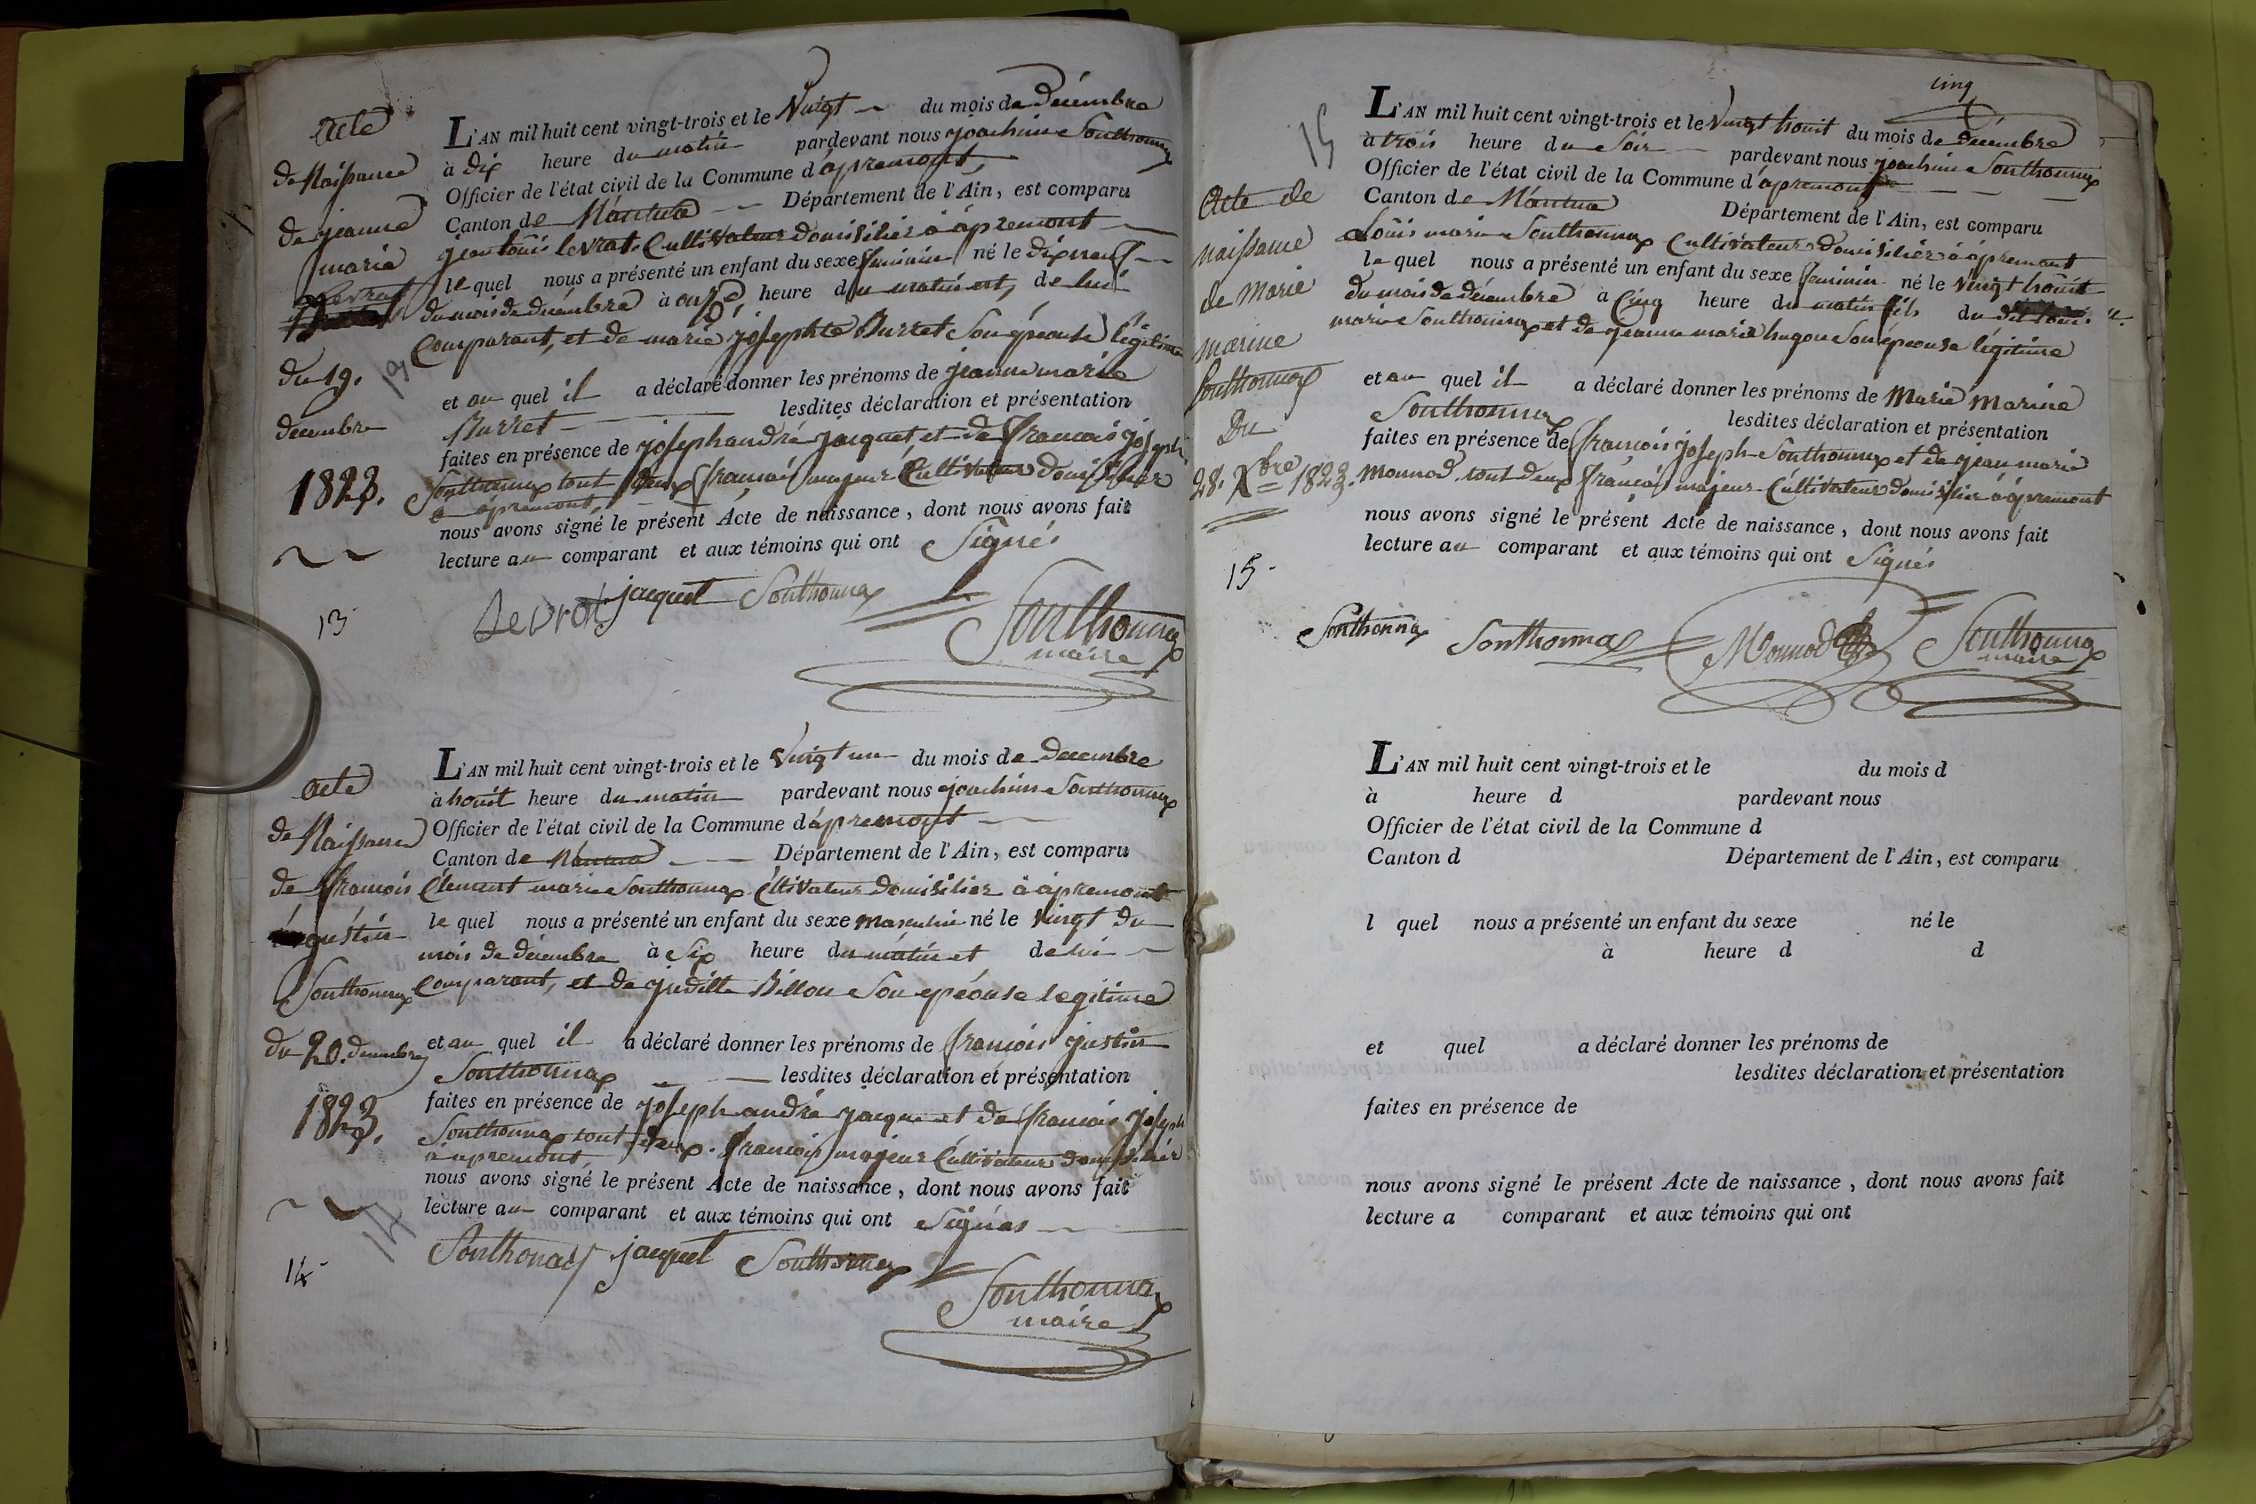 acte
de Naissance
de jeanne
marie
Levrat
du 19.
decembre
1823.
13
L'AN mil huit cent vingt-trois et le Vingt du mois de décembre
à dix heure du matin pardevant nous joachim Sonthonnax
Officier de l'état civil de la Commune d'ápremont,
Canton de Nántua Département de l'Ain, est comparu
jean louis Levrat Cultivateur domisilier à ápremont
le quel nous a présenté un enfant du sexe feminin né le dix neuf
du mois de décembre à onze heure du matin et, de lui
Comparant, et de marie josephte Burret Son épeouse légitime
et au quel il a déclaré donner les prénoms de jeanne marie
Burret lesdites déclaration et présentation
faites en présence de joseph andré jacquet, et de francois joseph
Sonthonnax tout deux francais majeur Cultivateur domisilier
a ápremont,
nous avons signé le présent Acte de naissance, dont nous avons fait
lecture au comparant et aux témoins qui ont Signés
Levrat jacquet Sonthonnax
Sonthonnax
maire
13
acte
de Naissance
de francois
gustin
Sonthonnax
du 20. decembre
1823.
14
L'AN mil huit cent vingt-trois et le Vingt un du mois de decembre
à houit heure du matin pardevant nous joachim Sonthonnax
Officier de l'état civil de la Commune d'ápremont
Canton de Nántua Département de l'Ain, est comparu
Clement marie Sonthonnax Cltivateur domisilier à ápremont
le quel nous a présenté un enfant du sexe masculin né le vingt du
mois de décembre à Six heure du mátin et de lui
Comparant, et de juditte Billon Son epéouse legitime
et au quel il a déclaré donner les prénoms de francois justin
Sonthonnax lesdites déclaration et présentation
faites en présence de joseph andré jacquet et de francois joseph
Sonthonnax tout deux francois majeur Cultivateur domisilier
a apremont,
nous avons signé le présent Acte de naissance, dont nous avons fait
lecture au comparant et aux témoins qui ont Signés
Sonthonax jacquet Sonthonnax
Sonthonnax
maire
14
cinq
15
Acte de
naissance
de Marie
marine
Sonthonnax
Du
28. Xbre 1823.
15
L'AN mil huit cent vingt-trois et le Vingt houit du mois de décembre
à trois heure du Soir pardevant nous joachim Sonthonnax
Officier de l'état civil de la Commune d'ápremont
Canton de Nántua Département de l'Ain, est comparu
Loüis marie Sonthonnax Cultivateur domisilier à ápremont
le quel nous a présenté un enfant du sexe feminin né le vingt houit
du mois de décembre à Cinq heure du matin fils du dit louis
marie Sonthonnax et de jeanne marie hugon Son épeouse légitime
et au quel il a déclaré donner les prénoms de Marie Marine
Sonthonnax lesdites déclaration et présentation
faites en présence de francois joseph Sonthonnax et de jean marie
Monnod, tout deux francais majeur Cultivateur domisilier à ápremont
nous avons signé le présent Acte de naissance, dont nous avons fait
lecture au comparant et aux témoins qui ont Signés
Sonthonnax Sonthonnax Monnod Sonthonnax
maire
L'AN mil huit cent vingt-trois et le du mois d
à heure d pardevant nous
Officier de l'état civil de la Commune d
Canton d Département de l'Ain, est comparu
l quel nous a présenté un enfant du sexe né le
à heure d d
et quel a déclaré donner les prénoms de
lesdites déclaration et présentation
faites en présence de
nous avons signé le présent Acte de naissance, dont nous avons fait
lecture a comparant et aux témoins qui ont